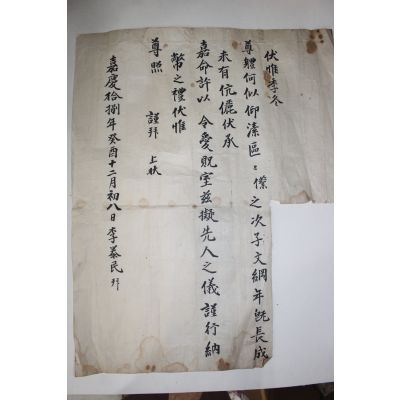 伏惟季冬
尊軆何似仰溸區〻僕之次子文綱年旣長成
未有伉儷伏承
嘉命許以 令愛貺室玆擬先人之儀謹行納
幣之禮伏惟
尊照 謹拜 上狀
嘉慶拾捌年癸酉十二月初八日李泰民 拜